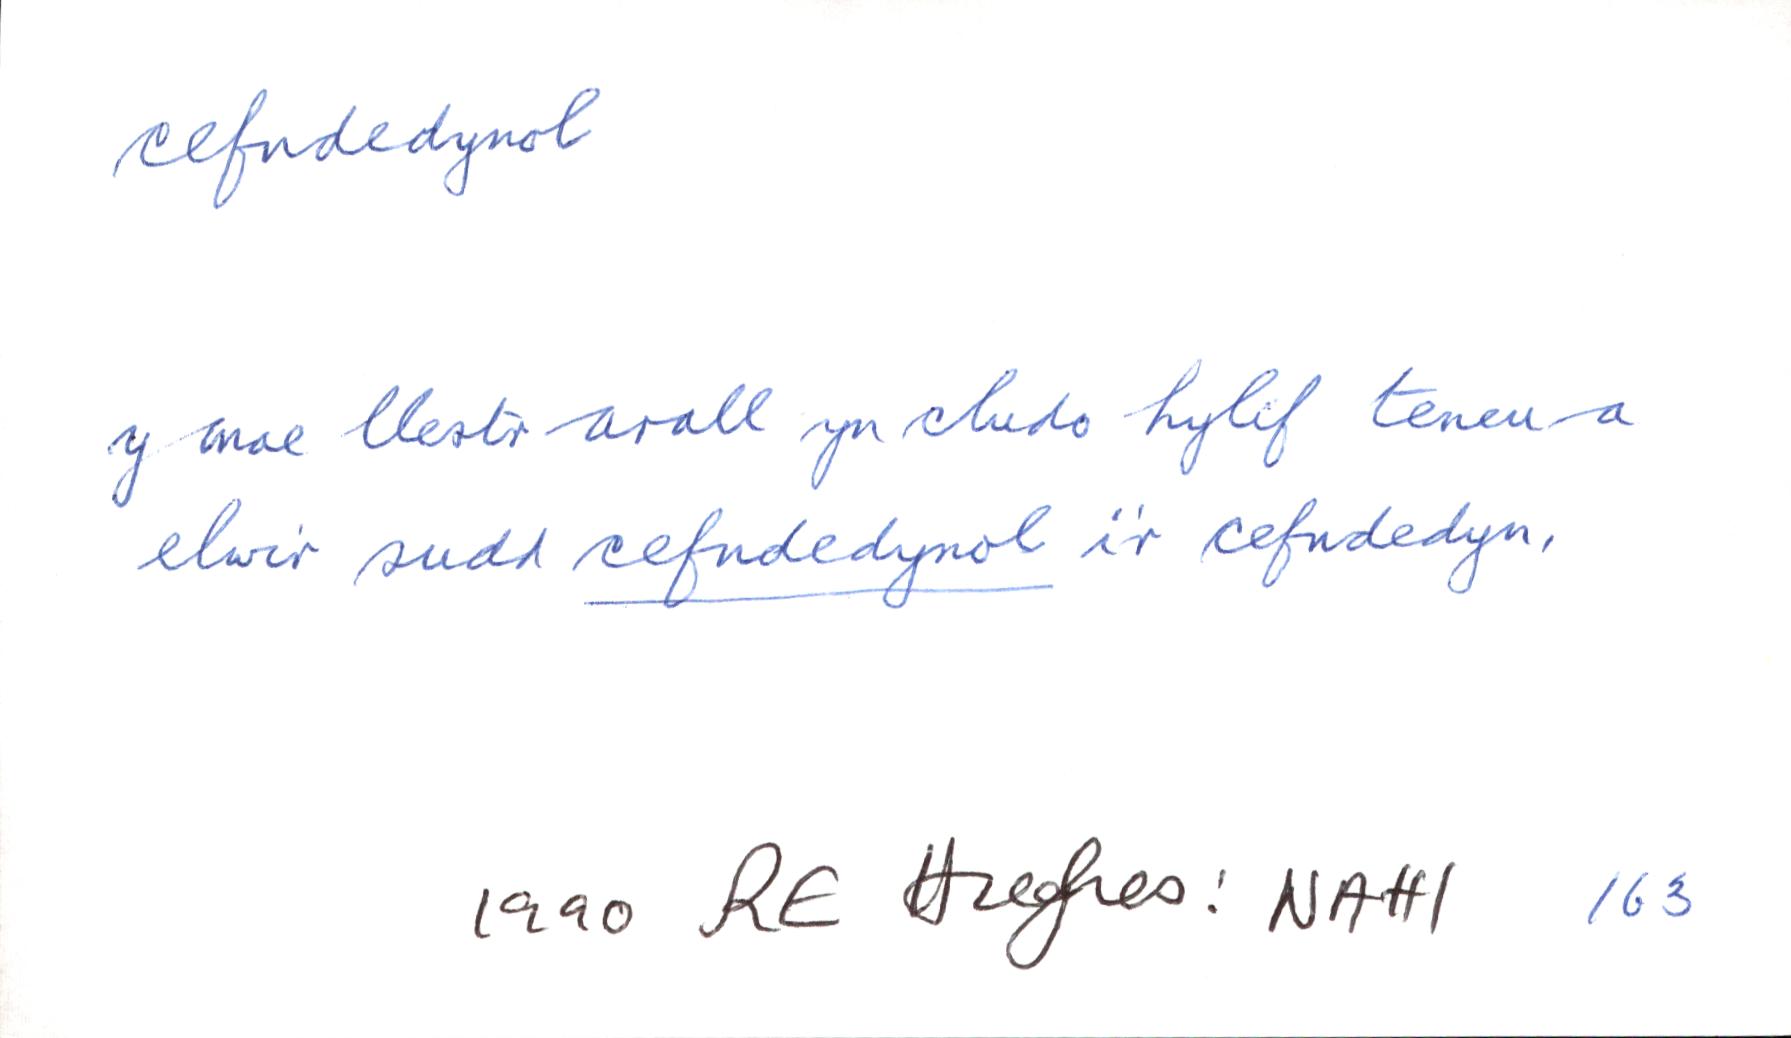 cefndedynol
y mae llestr arall yn cludo hylif teneu a
elwir sudd cefndedynol i'r cefndedyn.
1990 RE Hughes: NAHI 163